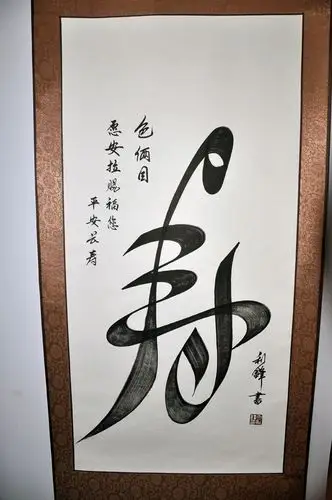 色俩目
愿安拉赐福您
平安长寿
寿
利鋒書